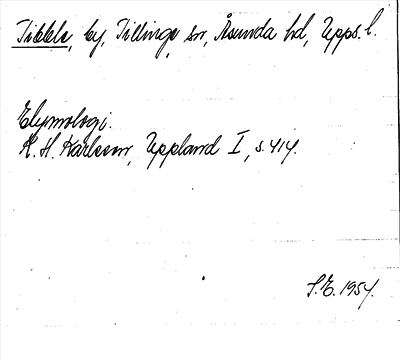 Tibble, by, Tillinge sn, Åsunda hd, Upps. l.
Etymologi.
K. H. Karlsson, Uppland I, s. 414.
S.E. 1954.